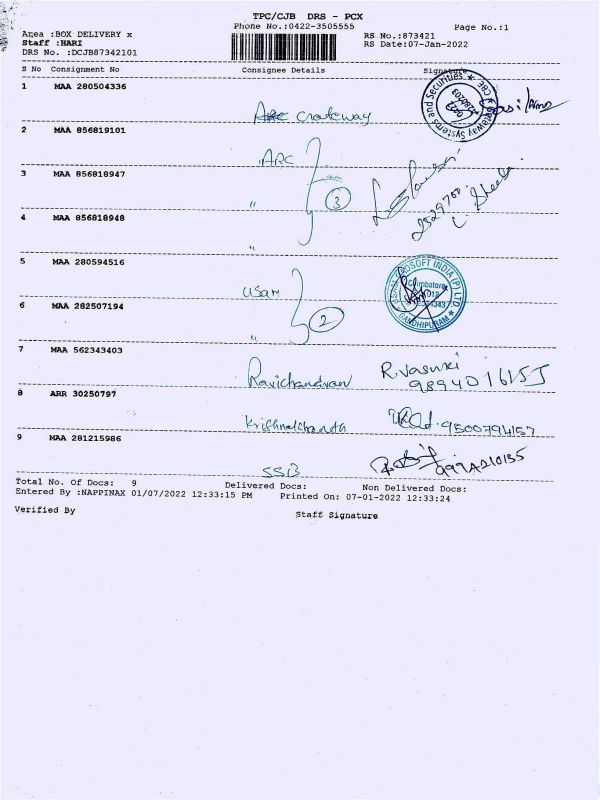 TPC/CJB DRS - PCX
Phone No.:0422-3505555
Page No.:1
Area :BOX DELIVERY x
RS No.:873421
Staff :HARI
RS Date:07-Jan-2022
DRS No. :DCJB87342101
S No Consignment No Consignee Details Signature
1 MAA 280504336
2 MAA 856819101
ARC
3 MAA 856818947
" 3
4 MAA 856818948
"
5 MAA 280594516
USAM
6 MAA 282507194
" 2
7 MAA 562343403
Ravichandran R.Vasuki
8 ARR 30250797
9500794157
9 MAA 281215986
SSB
Total No. Of Docs: 9 Delivered Docs: Non Delivered Docs:
Entered By :NAPPINAX 01/07/2022 12:33:15 PM Printed On: 07-01-2022 12:33:24
Verified By Staff Signature